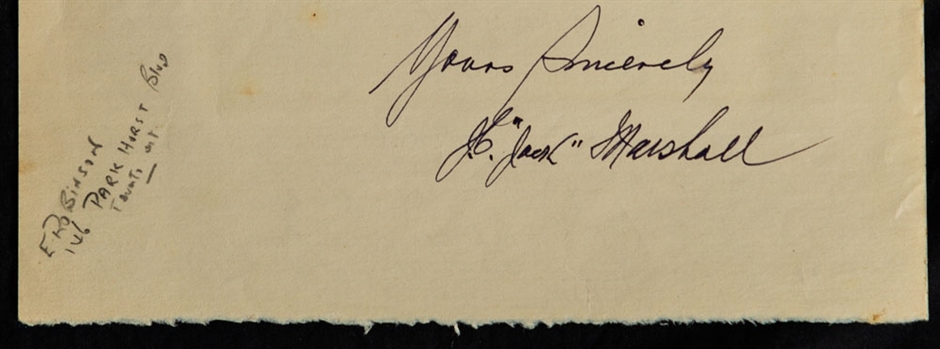 Yours Sincerely
J.C. "Jack" Marshall
E ROBINSON
146 PARK HURST Blvd
Toronto ont